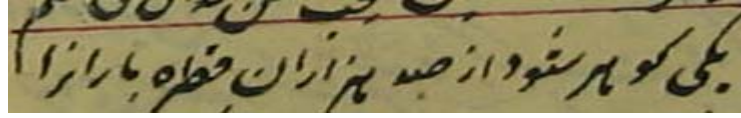 یکی گوهر شود از صد هزاران قطره بارانرا